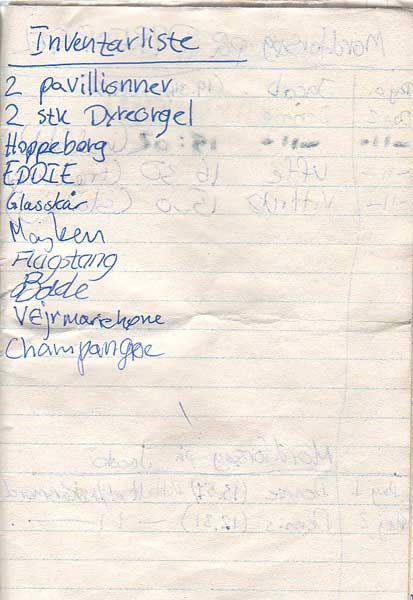 Inventarliste
2 pavillionner
2 stk Dyreorgel
Hoppeborg
EDDIE
Glasskår
Majken
Flagstang
Bade
Vejrmariehøne
Champangne